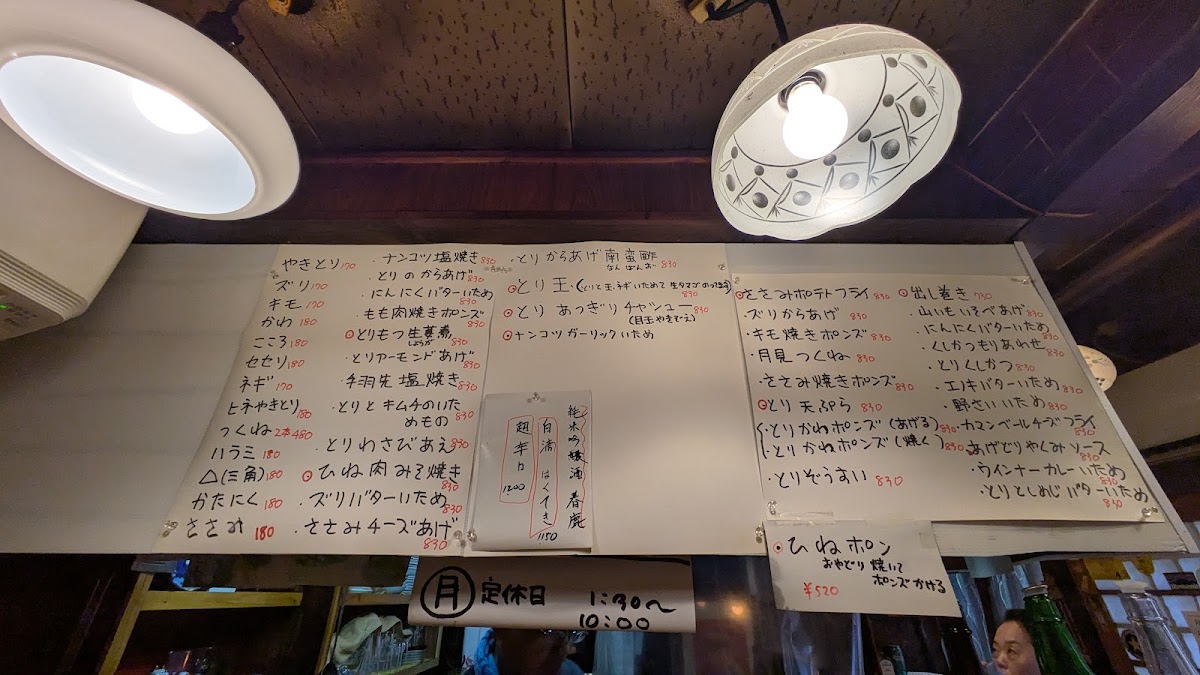 やきとり 170
ズリ 170
キモ 170
かわ 180
こころ 180
セセリ 180
ネギ 170
ヒネやきとり 180
つくね 2本480
ハラミ 180
△(三角) 180
かたにく 180
ささみ 180
・ナンコツ塩焼き 830
・とりのからあげ 830
・にんにくバターいため 830
・もも肉焼きポンズ 830
とりもつ生姜煮 830
しょうが
・とりアーモンドあげ 830
・手羽先塩焼き 830
・とりとキムチのいた
めもの 830
・とりわさびあえ 830
ひね肉みそ焼き 830
・ズリバターいため 830
・ささみチーズあげ 830
・とりからあげ南蛮酢 830
なんばんず
・とり玉・(とりと玉ネギいためて生タマゴのつ
830
・とりあっぎりチャシュー 830
(目玉やきでえ)
・ナンコツガーリックいため
純米吟醸酒 春鹿
白滴 はくてき 1150
超辛口 1200
ささみポテトフライ 830
ズリからあげ 830
・キモ焼きポンズ 830
・月見つくね 830
・ささみ焼きポンズ 830
とり天ぷら 830
・とりかわポンズ(あげる) 830
・とりかわポンズ(焼く) 830
・とりぞうすい 830
出し巻き 730
・山いもいそべあげ 830
・にんにくバターいため 830
・くしかつもりあわせ 830
・とりくしかつ 830
・エノキバターいため 830
・野さいいため 830
・カマンベールチーズフライ 830
・あげどりやくみソース 830
・ウインナーカレーいため 830
・とりとしめじバターいため 830
ひねポン
おやどり焼いて
ポンズかける
¥520
月 定休日 1:30〜
10:00